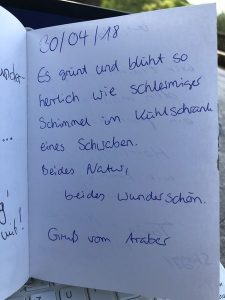 30/04/18
Es grünt und blüht so
herrlich wie schleimiger
Schimmel im Kühlschrank
eines Schwaben.
Beides Natur,
beides wunderschön.
Gruß vom Araber